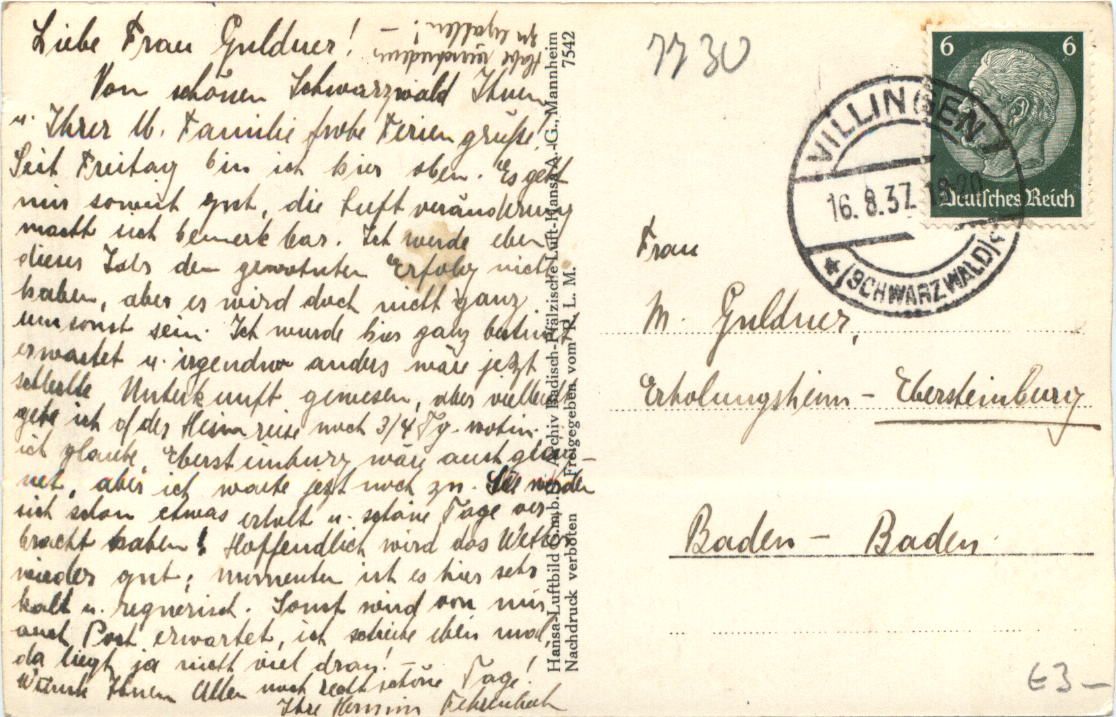 Liebe Frau Guldner!
Vom schönen Schwarzwald Ihnen
u. Ihrer lb. Familie frohe Feriengrüße!
Seit Freitag bin ich hier oben. Es geht
mir soweit gut, die Luftveränderung
macht sich bemerkbar. Ich werde eben
dieses Jahr den gewohnten Erfolg nicht
haben, aber es wird doch nicht ganz
umsonst sein. Ich wurde hier ganz
erwartet u. irgendwo anders wäre jetzt
schlechte Unterkunft gewesen, aber vielleicht
gehe ich a/d Heimreise noch 3/4 Tg. wohin.
ich glaube, Ebersteinburg wäre auch
aber ich warte jetzt noch zu. Sie werden
sich schon etwas erholt u. schöne Tage ver-
bracht haben! Hoffendlich wird das Wetter
wieder gut; momentan ist es hier sehr
kalt u. regnerisch. Sonst wird von mir
auch Post erwartet, ich schreibe eben mal,
da liegt ja nicht viel dran!
Wünsche Ihnen Allen noch recht schöne Tage!
Ihre
Habe
zu erzählen! –
Hansa-Luftbild G.m.b.H. Archiv Badisch-Pfälzische Luft-Hansa A.-G., Mannheim
Nachdruck verboten Freigegeben vom R. L. M. 7542
7730
6 6
Deutsches Reich
VILLINGEN
16.8.37. 18-20
(SCHWARZWALD) c
Frau
M. Guldner,
Erholungsheim - Ebersteinburg
Baden - Baden.
€3-